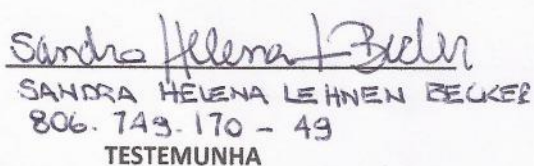 Sandra Helena L Becker
SANDRA HELENA LEHNEN BECKER
806.749.170-49
TESTEMUNHA